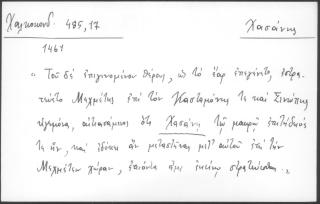 Χαλκοκονδ. 485,17
Χασάνης
1461
« Τοῦ δὲ ἐπιγινομένου θέρους, ὡς τὸ ἔαρ ἐπεγένετο, ἐστρα-
τεύετο Μεχμέτης ἐπὶ τὸν Κασταμόνης τε καὶ Σινώπης
ἡγεμόνα, αἰτιασάμενος ὅτι Χασάνῃ τῷ μακρῷ ἐπιτήδειός
τε ἦν, καὶ ἐδόκει ἂν μεταστῆναι μετ' αὐτοῦ ἐπὶ τὴν
Μεχμέτεω χώραν, ἐπιόντα ἅμα ἐκείνῳ στρατεύεσθαι. »